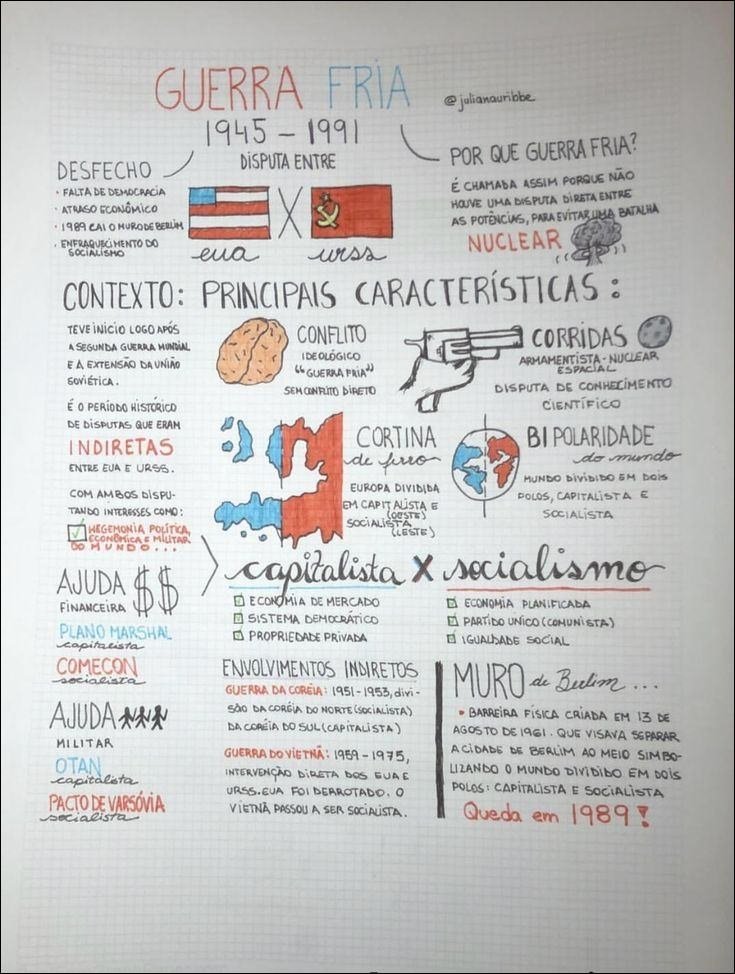 GUERRA FRIA
@julianauribbe
1945 - 1991
DISPUTA ENTRE
EUA X URSS
DESFECHO
• FALTA DE DEMOCRACIA
• ATRASO ECONÔMICO
• 1989 CAI O MURO DE BERLIM
• ENFRAQUECIMENTO DO
SOCIALISMO
POR QUE GUERRA FRIA?
É CHAMADA ASSIM PORQUE NÃO
HOUVE UMA DISPUTA DIRETA ENTRE
AS POTÊNCIAS, PARA EVITAR UMA BATALHA
NUCLEAR
CONTEXTO:
TEVE INÍCIO LOGO APÓS
A SEGUNDA GUERRA MUNDIAL
E A EXTENSÃO DA UNIÃO
SOVIÉTICA.
É O PERÍODO HISTÓRICO
DE DISPUTAS QUE ERAM
INDIRETAS
ENTRE EUA E URSS.
COM AMBOS DISPU-
TANDO INTERESSES COMO:
HEGEMONIA POLÍTICA,
ECONÔMICA E MILITAR
DO MUNDO...
PRINCIPAIS CARACTERÍSTICAS:
CONFLITO
IDEOLÓGICO
"GUERRA FRIA"
SEM CONFLITO DIRETO
CORRIDAS
ARMAMENTISTA - NUCLEAR
ESPACIAL
DISPUTA DE CONHECIMENTO
CIENTÍFICO
CORTINA
de ferro
EUROPA DIVIDIDA
EM CAPITALISTA E
(OESTE)
SOCIALISTA
(LESTE)
BIPOLARIDADE
do mundo
MUNDO DIVIDIDO EM DOIS
POLOS, CAPITALISTA E
SOCIALISTA
capitalista X socialismo
ECONOMIA DE MERCADO
SISTEMA DEMOCRÁTICO
PROPRIEDADE PRIVADA
ECONOMIA PLANIFICADA
PARTIDO UNICO (COMUNISTA)
IGUALDADE SOCIAL
AJUDA $$
FINANCEIRA
PLANO MARSHAL
capitalista
COMECON
socialista
AJUDA
MILITAR
OTAN
capitalista
PACTO DE VARSÓVIA
socialista
ENVOLVIMENTOS INDIRETOS
GUERRA DA CORÉIA: 1951-1953, divi-
SÃO DA CORÉIA DO NORTE (SOCIALISTA)
DA CORÉIA DO SUL (CAPITALISTA)
GUERRA DO VIETNÃ: 1959-1975,
INTERVENÇÃO DIRETA DOS EUA E
URSS. EUA FOI DERROTADO. O
VIETNÃ PASSOU A SER SOCIALISTA.
MURO de Berlim...
• BARREIRA FÍSICA CRIADA EM 13 DE
AGOSTO DE 1961. QUE VISAVA SEPARAR
A CIDADE DE BERLIM AO MEIO SIMBO-
LIZANDO O MUNDO DIVIDIDO EM DOIS
POLOS: CAPITALISTA E SOCIALISTA
Queda em 1989!